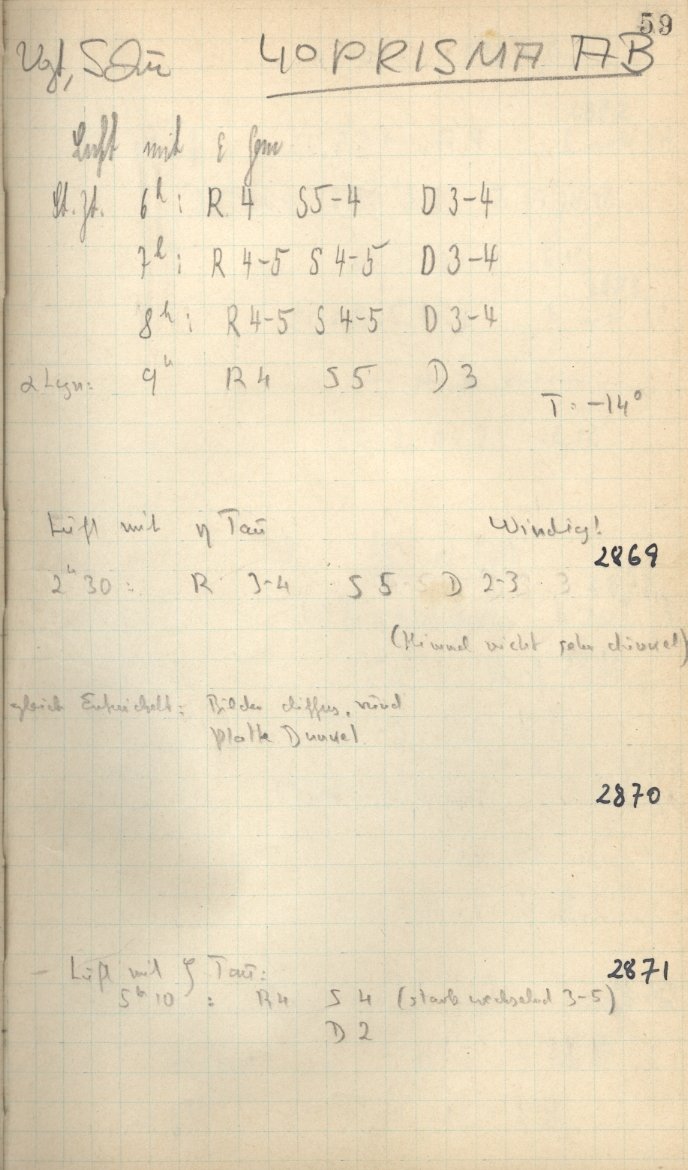 59
Vgt, SDü 4° PRISMA AB
Luft mit ε Gem
St. Zt. 6h: R 4 S5-4 D 3-4
7h: R 4-5 S 4-5 D 3-4
8h: R 4-5 S 4-5 D 3-4
α Lyn: 9h R 4 S 5 D 3
T: -14°
Luft mit η Tau Windig!
2869
2h 30: R 3-4 S 5 D 2-3
(Himmel nicht sehr dunkel)
gleich Entwickelt: Bilder diffus, rund
Platte Dunkel
2870
2871
- Luft mit ζ Tau:
5h 10: R4 S 4 (stark wechselnd 3-5)
D 2